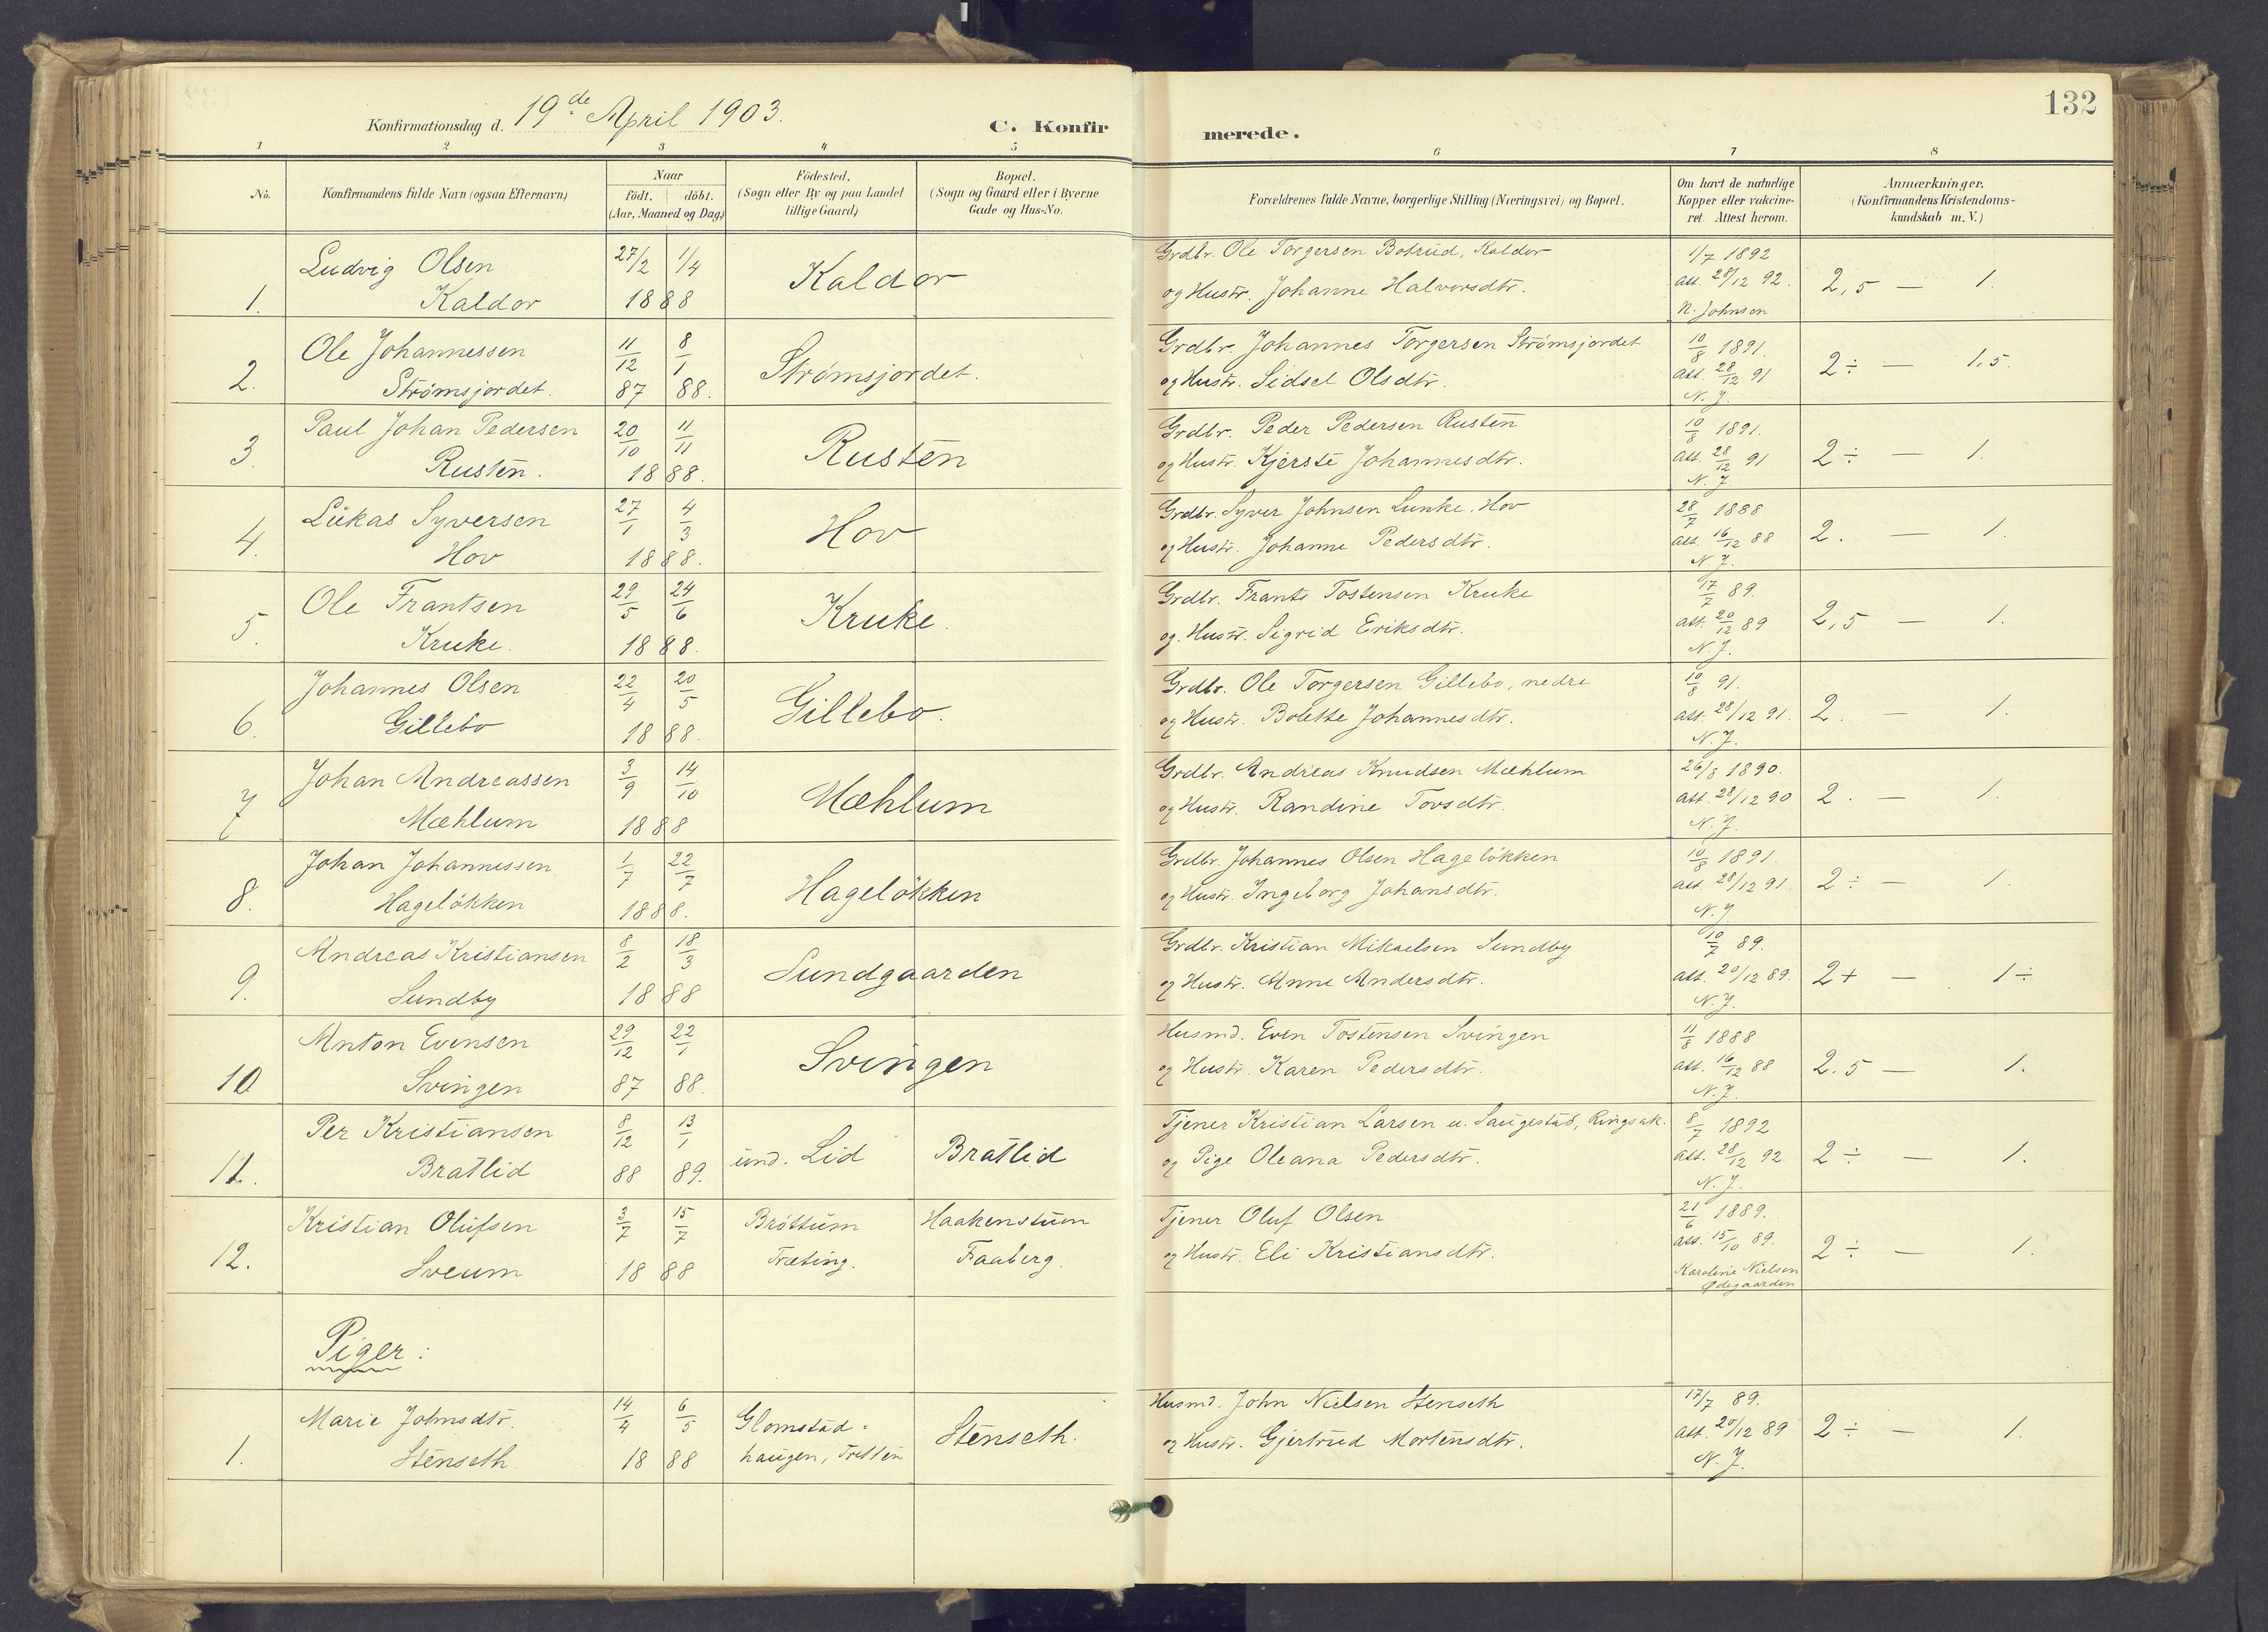 132
Konfirmationsdag d. 19de April 1903.
C. Konfirmerede.
1 2 3 4 5 6 7 8
No.
Konfirmandens fulde Navn (ogsaa Efternavn)
Naar
födt. döbt.
(Aar, Maaned og Dag)
Födested.
(Sogn eller By og paa Landet
tillige Gaard)
Bopæl.
(Sogn og Gaard eller i Byerne
Gade og Hus-No.
Forældrenes fulde Navne, borgerlige Stilling (Næringsvei) og Bopæl.
Om havt de naturlige
Kopper eller vaccine-
ret. Attest herom.
Anmærkninger.
(Konfirmandens Kristendoms-
kundskab m. V.)
1. Ludvig Olsen
Kaldor
27/2 1/4
1888
Kaldor
Grdbr. Ole Torgersen Botrud, Kaldor
og Hustr. Johanne Halvorsdtr.
1/7 1892
att. 28/12 92.
N. Johnsen
2,5 — 1.
2. Ole Johannessen
Strømsjordet.
11/12 8/1
87 88.
Strømsjordet.
Grdbr. Johannes Torgersen Strømsjordet
og Hustr. Sidsel Olsdtr.
10/8 1891.
att. 28/12 91
N. J.
2 ÷ — 1,5.
3. Paul Johan Pedersen
Rusten.
20/10 11/11
1888.
Rusten
Grdbr. Peder Pedersen Rusten
og Hustr. Kjersti Johannesdtr.
10/8 1891.
att. 28/12 91
N. J
2 ÷ — 1.
4. Lukas Syversen
Hov
27/1 4/3
1888.
Hov
Grdbr. Syver Johnsen Lunke, Hov
og Hustr. Johanne Pedersdtr.
28/7 1888
att. 16/12 88
N. J.
2. — 1.
5. Ole Frantsen
Kruke.
29/5 24/6
1888.
Kruke.
Grdbr. Frants Tostensen Kruke
og. Hustr. Sigrid Eriksdtr.
17/7 89.
att. 20/12 89
N. J.
2,5 — 1.
6. Johannes Olsen
Gillebo
22/4 20/5
1888.
Gillebo.
Grdbr. Ole Torgersen Gillebo, nedre
og Hustr. Bolette Johannesdtr.
10/8 91.
att. 28/12 91.
N. J.
2. — 1.
7 Johan Andreassen
Mæhlum
3/9 14/10
1888
Mæhlum
Grdbr. Andreas Knudsen Mæhlum
og Hustr. Randine Tovsdtr.
26/8 1890.
att. 28/12 90
N. J.
2. — 1.
8. Johan Johannessen
Hageløkken
1/7 22/7
1888.
Hageløkken
Grdbr. Johannes Olsen Hageløkken
og Hustr. Ingeborg Johansdtr.
10/8 1891.
att. 28/12 91.
N. J
2 ÷ — 1.
9. Andreas Kristiansen
Sundby
8/2 18/3
1888
Sundgaarden
Grdbr. Kristian Mikaelsen Sundby
og Hustr. Anne Andersdtr.
10/7 89.
att. 20/12 89.
N. J.
2 + — 1 ÷
10 Anton Evensen
Svingen
29/12 22/1
87 88.
Svingen
Husmd. Even Tostensen Svingen
og Hustr. Karen Pedersdtr.
11/8 1888
att. 16/12 88
N. J.
2.5 — 1.
11. Per Kristiansen
Bratlid
8/12 13/1
88 89.
und. Lid
Bratlid
Tjener Kristian Larsen u. Saugestad, Ringsak.
og Pige Oleana Pedersdtr.
8/7 1892
att. 28/12 92
N. J.
2 ÷ — 1.
12. Kristian Olufsen
Sveum
3/7 15/7
1888
Brøttum
Træting.
Haakenstuen
Faaberg.
Tjener Oluf Olsen
og Hustr. Eli Kristiansdtr.
21/6 1889.
att. 15/10 89.
Karoline Nielsen
Ødegaarden
2 ÷ — 1.
Piger:
1. Marie Johnsdtr.
Stenseth.
14/4 6/5
1888
Glomstad-
haugen, Tretten
Stenseth.
Husmd. John Nielsen Stenseth
og Hustr. Gjertrud Mortensdtr.
17/7 89.
att. 20/12 89
N. J.
2 ÷ — 1.